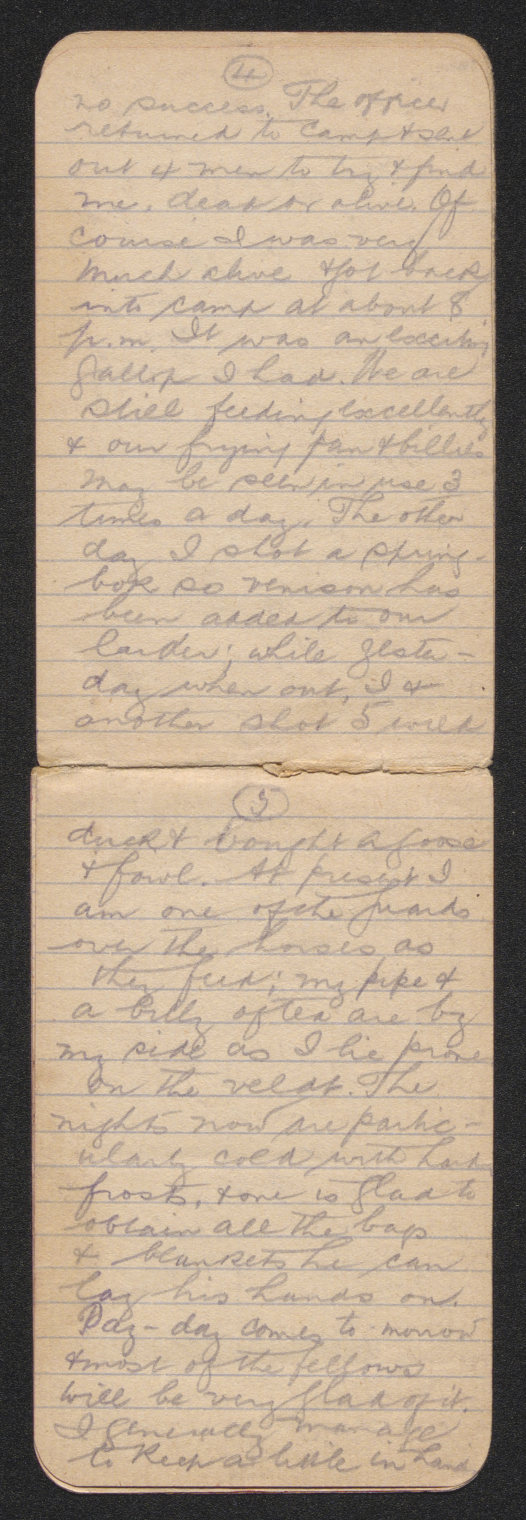 4
no success. The officer
returned to camp & sent
out 4 men to try & find
me, dead or alive. Of
course I was very
much alive & got back
into camp at about 8
p.m. It was an exciting
gallop I had. We are
still feeding excellently
& our frying pan & billies
may be seen in use 3
times a day. The other
day I shot a spring-
bok so venison has
been added to our
larder; while yester-
day when out, I &
another shot 5 wild
5
duck & bought a goose
& fowl. At present I
am one of the guards
over the horses as
they feed; my pipe &
a billy of tea are by
my side as I lie prone
on the veldt. The
nights now are partic-
ularly cold with hard
frosts, & one is glad to
obtain all the bags
& blankets he can
lay his hands on.
Pay-day comes to morrow
& most of the fellows
will be very glad of it.
I generally manage
to keep a little in hand